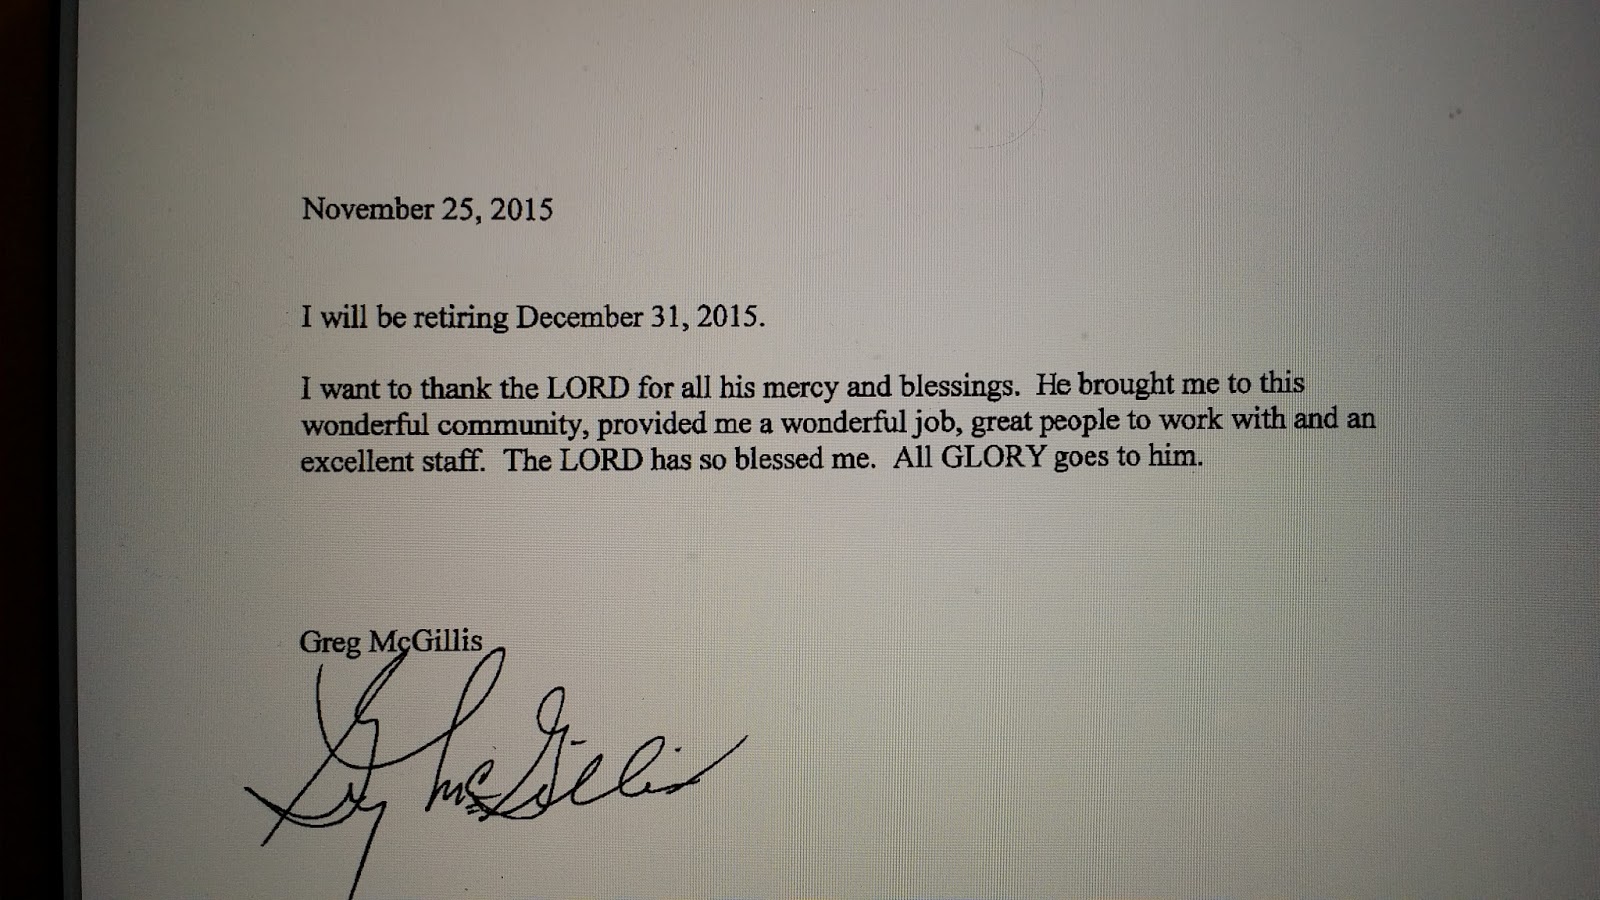 November 25, 2015
I will be retiring December 31, 2015.
I want to thank the LORD for all his mercy and blessings. He brought me to this
wonderful community, provided me a wonderful job, great people to work with and an
excellent staff. The LORD has so blessed me. All GLORY goes to him.
Greg McGillis
Greg McGillis